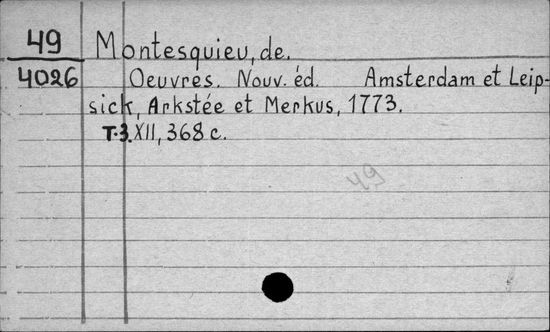 49
4026
Montesquieu, de.
Oeuvres. Nouv. éd. Amsterdam et Leip-
sick, Arkstée et Merkus, 1773.
T.3. XII, 368 c.
49